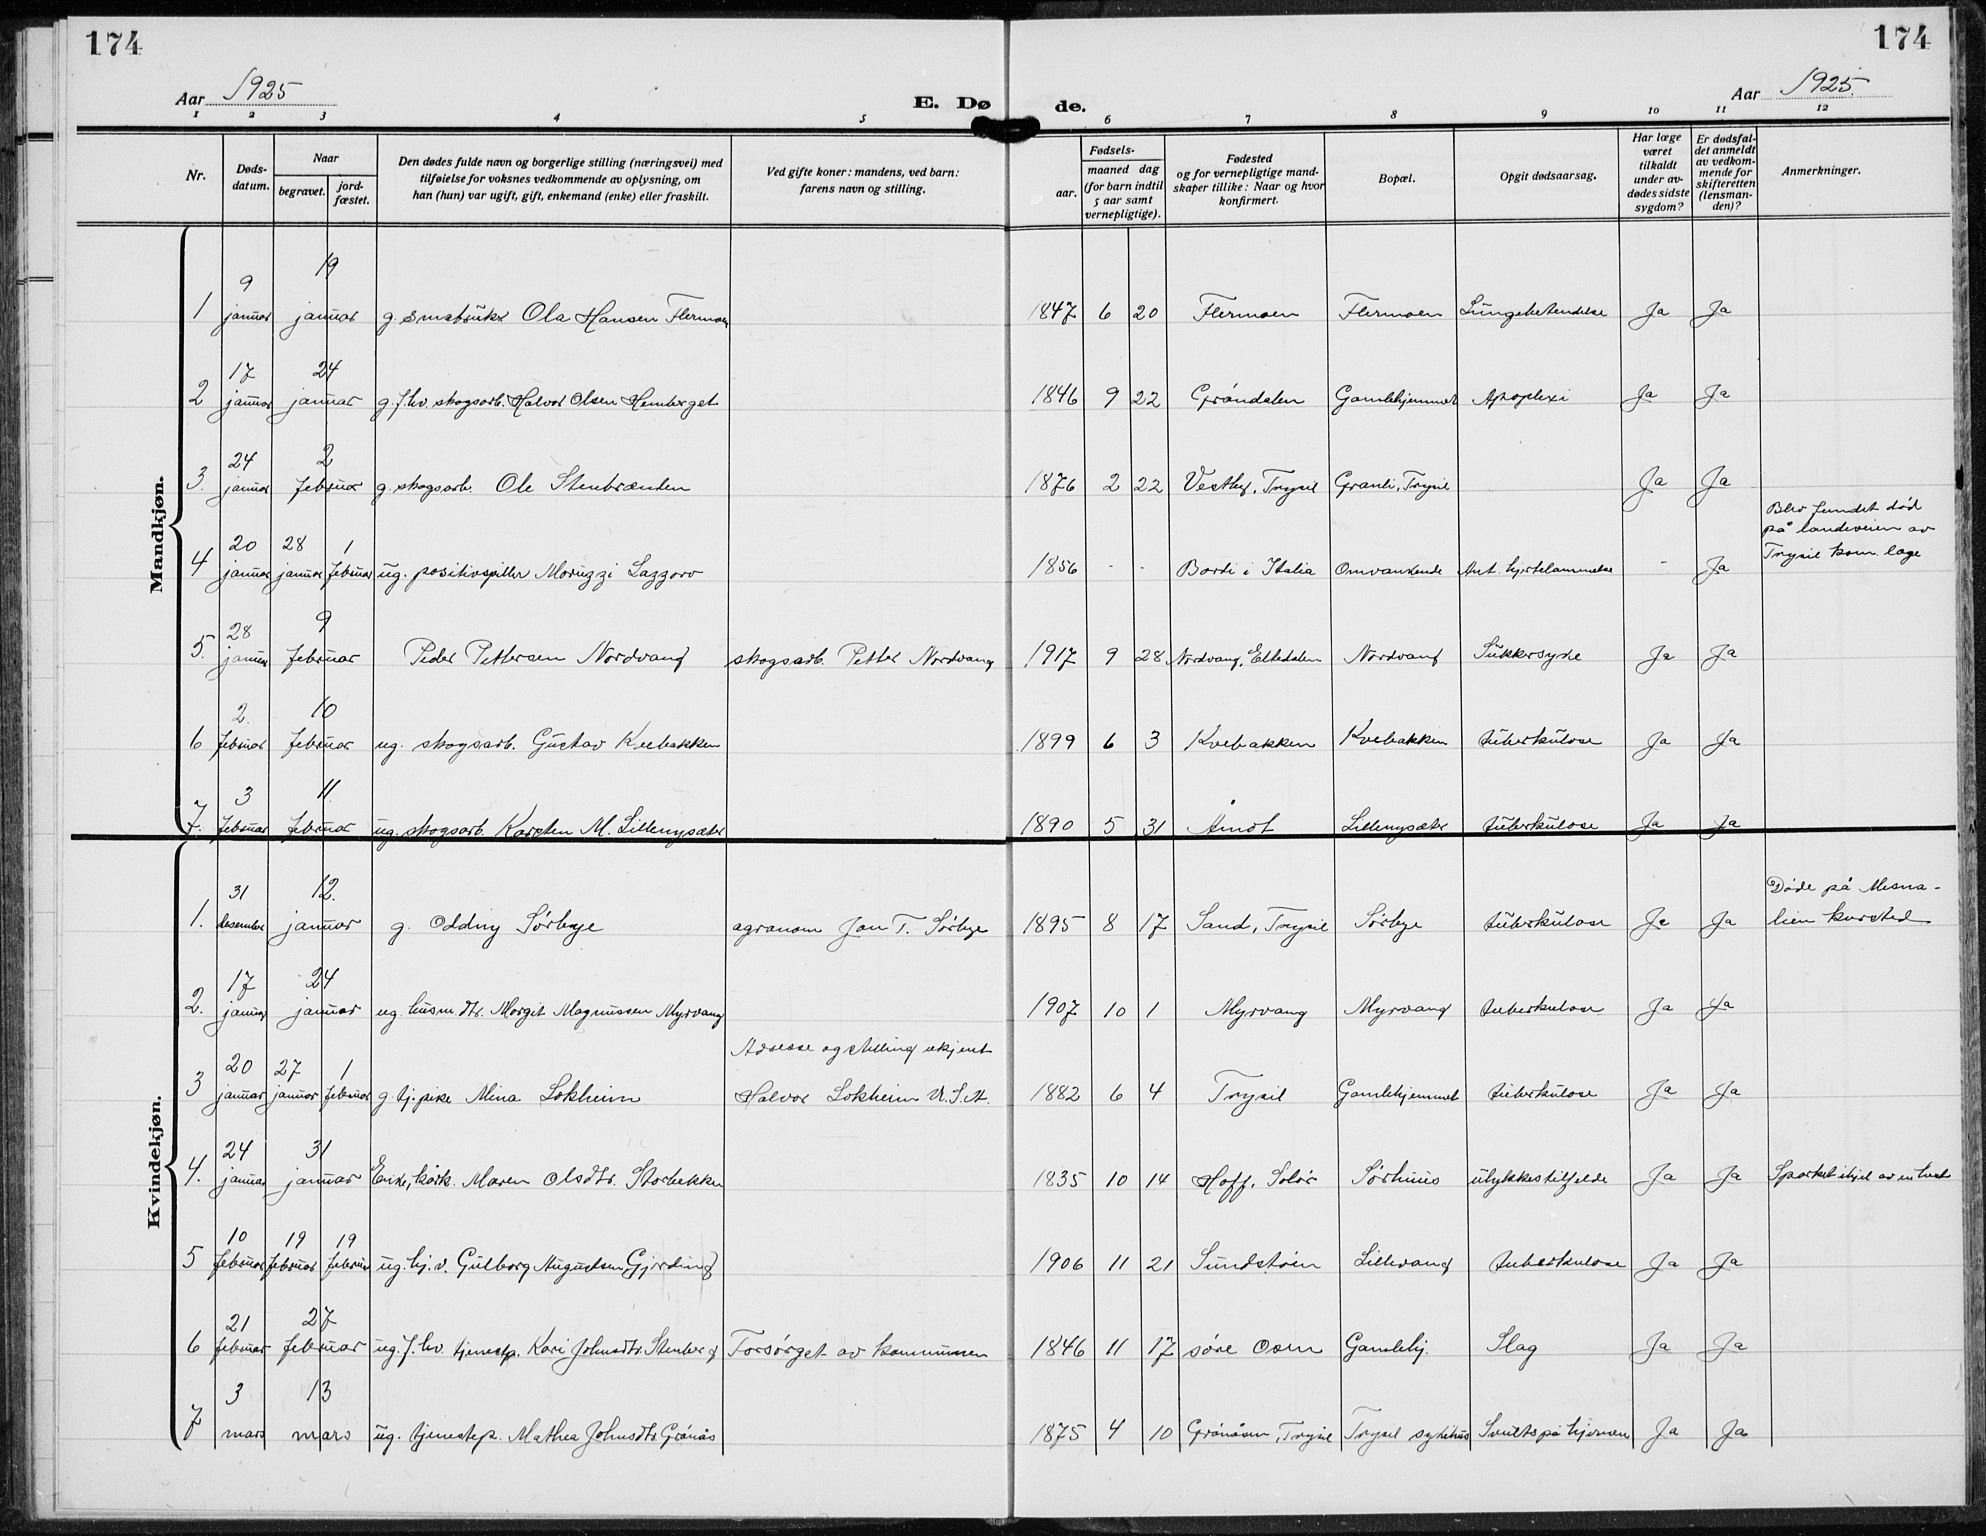 174
174
Aar 1925
E. Dø de.
Aar 1925.
1 2 3 4 5 6 7 8 9 10 11 12
Nr.
Døds-
datum.
Naar
begravet.
jord-
fæstet.
Den dødes fulde navn og borgerlige stilling (næringsvei) med
tilføielse for voksnes vedkommende av oplysning, om
han (hun) var ugift, gift, enkemand (enke) eller fraskilt.
Ved gifte koner: mandens, ved barn:
farens navn og stilling.
Fødsels-
aar.
maaned dag
(for barn indtil
5 aar samt
vernepligtige).
Fødested
og for vernepligtige mand-
skaper tillike: Naar og hvor
konfirmert.
Bopæl.
Opgit dødsaarsag.
Har læge
været
tilkaldt
under av-
dødes sidste
sygdom?
Er dødsfal-
det anmeldt
av vedkom-
mende for
skifteretten
(lensman-
den)?
Anmerkninger.
Mandkjøn.
9 19
1 januar januar g. småbruker Ola Hansen Flermoen 1847 6 20 Flermoen Flermoen Lungebetendelse Ja Ja
17 24
2 januar januar g. f.hv. skogsarb. Halvor Olsen Hemberget 1846 9 22 Grøndalen Gamlehjemmet Apoplexi Ja Ja
24 2
3. januar februar g. skogsarb. Ole Stenbrænden 1876 2 22 Vestby, Trysil Granli, Trysil Ja Ja
Blev fundet død
på landeveien av
Trysil kom. læge
20 28 1
4 januar januar februar ug. positivspiller Moruzzi Lazzoro 1856 - - Bardi i Italia Omvankende Ant. hjertelammelse - Ja
28 9
5. januar februar Peder Pettersen Nordvang skogsarb. Petter Nordvang 1917 9 28 Nordvang, Eltedalen Nordvang Sukkersyke Ja Ja
2. 10
6 februar februar ug. skogsarb. Gustav Kvebakken 1899 6 3 Kvebakken Kvebakken tuberkulose Ja Ja
3 11
7. februar februar ug. skogsarb. Karsten M. Lillenysæter 1890 5 31 Åmot Lillenysæter tuberkulose Ja Ja
Kvindekjøn.
31 12. Døde på Mesna-
1. desember januar g. Oddny Sørbye agronom Jon T. Sørbye 1895 8 17 Sand, Trysil Sørbye tuberkulose Ja Ja lien kursted
17 24
2. januar januar ug. husm.dtr. Margit Magnussen Myrvang 1907 10 1 Myrvang Myrvang tuberkulose Ja Ja
20 27 1 Adresse og stilling ukjent
3 januar januar februar g. tj.pike Mina Lokheim Halvor Lokheim U.S.A. 1882 6 4 Trysil Gamlehjemmet tuberkulose Ja Ja
24 31
4. januar januar Enke, kårk. Maren Olsdtr. Storbekken 1835 10 14 Hoff, Solør Sørhuus ulykkestilfelde Ja Ja Sparket ihjel av en hest
10 19 19
5 februar februar februar ug. hj.v. Gulborg Augustsen Gjerding 1906 11 21 Sundstøen Lillevang tuberkulose Ja Ja
21 27
6 februar februar ug. f.hv. tjenestp. Kari Johnsdtr. Stenberg Forsørget av kommunen 1846 11 17 søre Osen Gamlehj. Slag Ja Ja
3 13
7 mars mars ug. tjenestep. Mathea Johnsdtr. Grønås 1875 4 10 Grønåsen, Trysil Trysil sykehus Svulst på hjernen Ja Ja